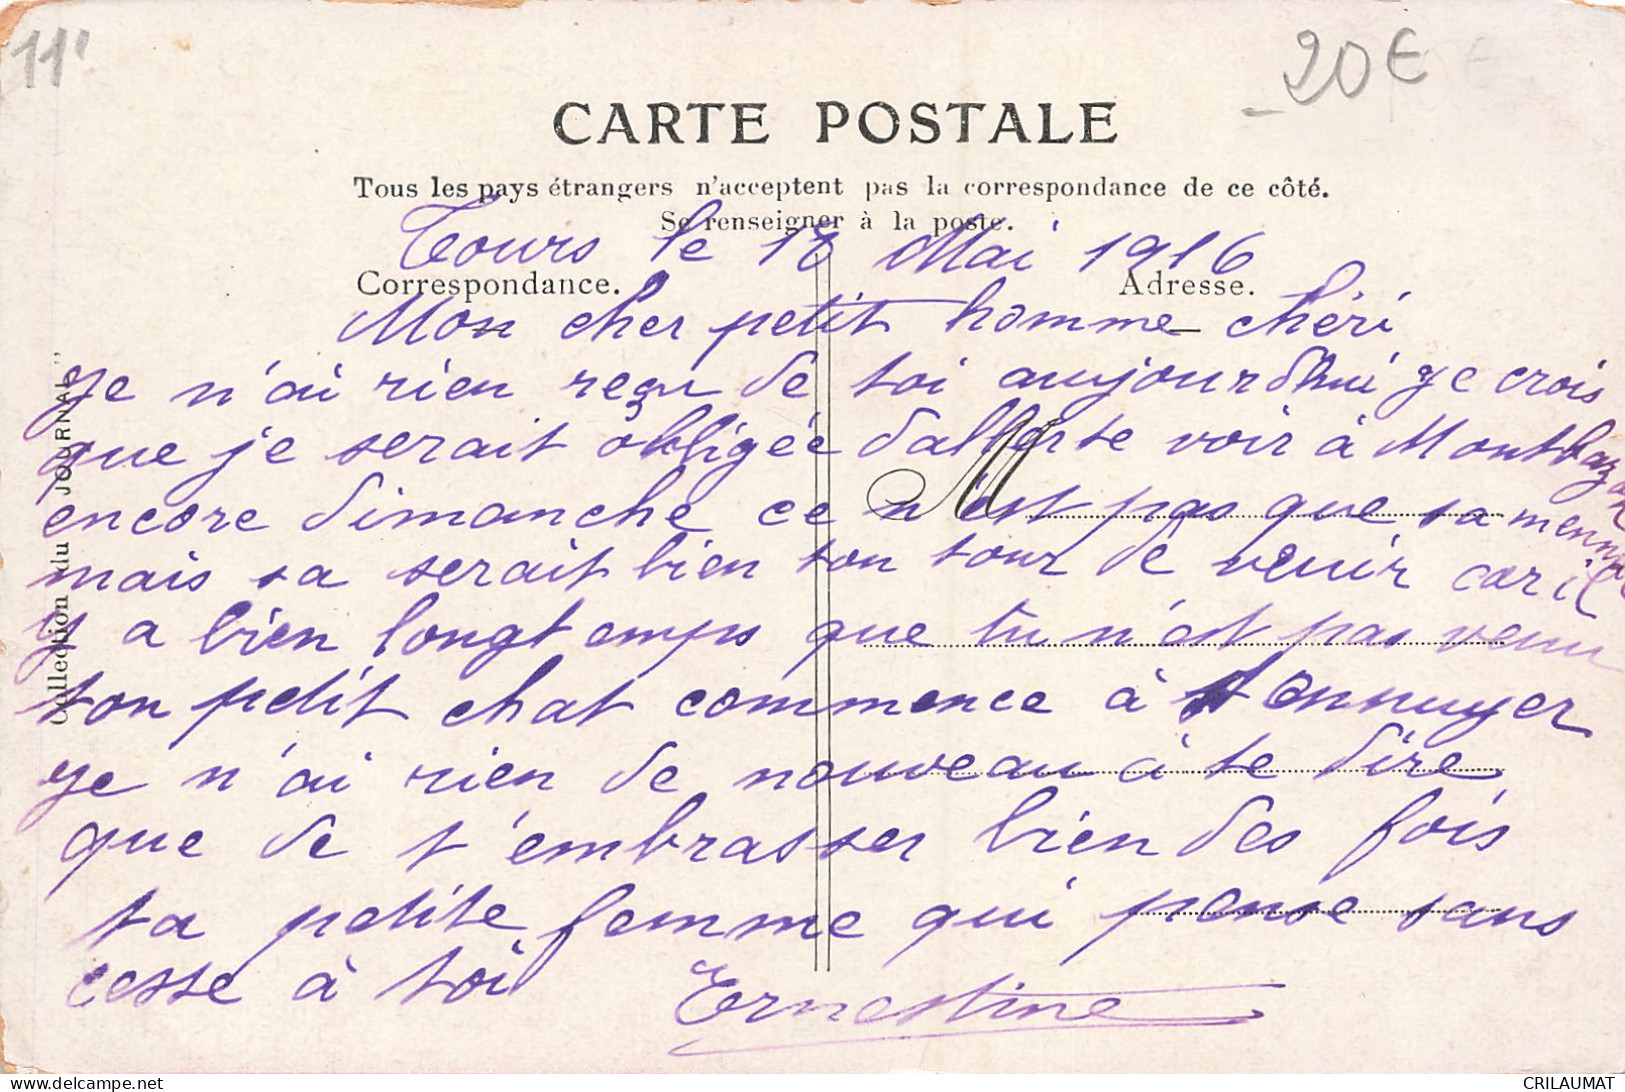 11'
20€
CARTE POSTALE
Tous les pays étrangers n'acceptent pas la correspondance de ce côté.
Se renseigner à la poste.
Tours le 18 Mai 1916
Correspondance.
Adresse.
Mon cher petit homme chéri
je n'ai rien reçu de toi aujourdhui je crois
que je serait obligée d'aller te voir à Montbazon
encore dimanche ce n'est pas que sa
mais sa serait bien ton tour de venir car il
y a bien longtemps que tu n'est pas venu
ton petit chat commence à s'ennuyer
je n'ai rien de nouveau à te dire
que de t'embrasser bien des fois
ta petite femme qui pense sans
cesse à toi
Ernestine
M
Collection du JOURNAL "
CRILAUMAT